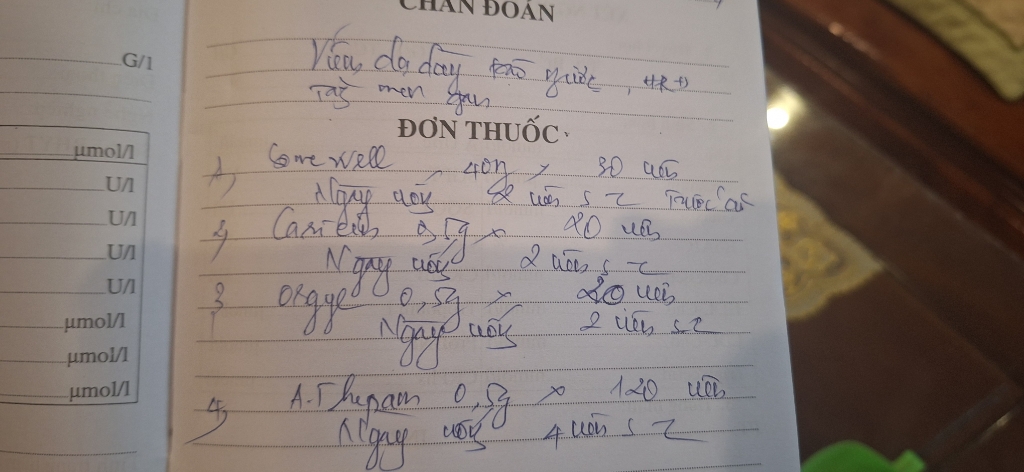 CHẨN ĐOÁN
Viêm dạ dày trào ngược, HP(+)
Tăng men gan
ĐƠN THUỐC
1, Somewell 40mg x 30 viên
Ngày uống 2 viên S C Trước ăn
2, 0,5g x 20 viên
Ngày uống 2 viên S C
3, 0,5g x 20 viên
Ngày uống 2 viên S C
4, A.T hepam 0,5g x 120 viên
Ngày uống 4 viên S C
G/l
µmol/l
U/l
U/l
U/l
U/l
µmol/l
µmol/l
µmol/l